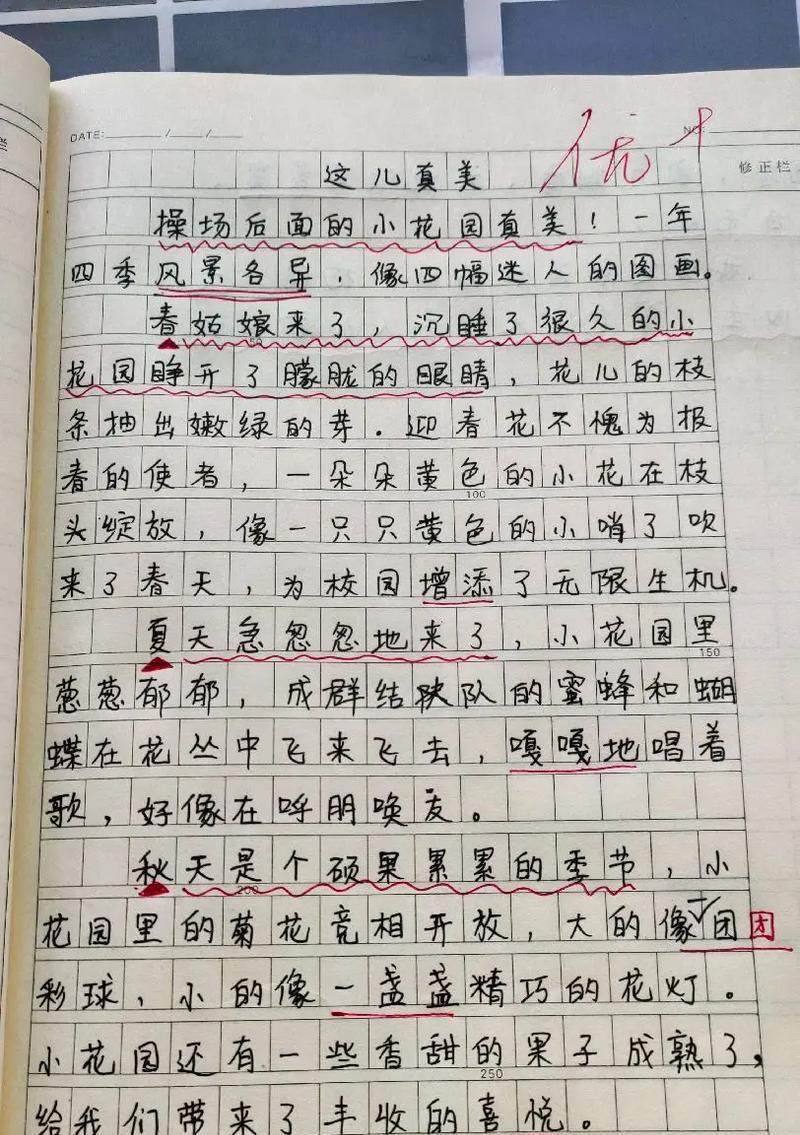 DATE: / /
NO.
优+
修正栏
这儿真美
操场后面的小花园真美！一年
四季风景各异，像四幅迷人的图画。
春姑娘来了，沉睡了很久的小
花园睁开了朦胧的眼睛，花儿的枝
条抽出嫩绿的芽．迎春花不愧为报
春的使者，一朵朵黄色的小花在枝
100
头绽放，像一只只黄色的小哨了吹
来了春天，为校园增添了无限生机。
夏天急忽忽地来了，小花园里
150
葱葱郁郁，成群结队的蜜蜂和蝴
蝶在花丛中飞来飞去，嘎嘎地唱着
歌，好像在呼朋唤友。
秋天是个硕果累累的季节，小
200
花园里的菊花竞相开放，大的像团团
彩球，小的像一盏盏精巧的花灯。
小花园还有一些香甜的果子成熟了，
250
给我们带来了丰收的喜悦。